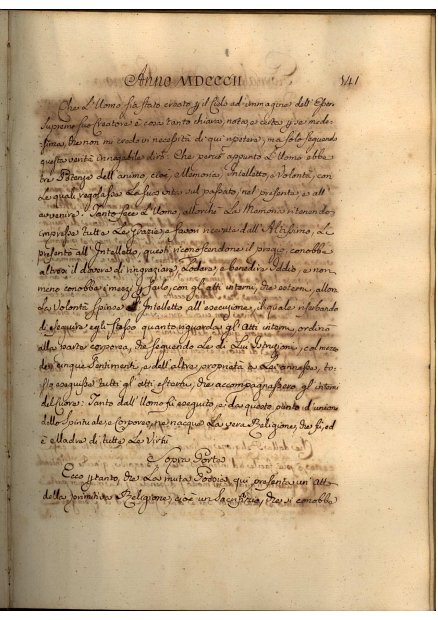 Anno MDCCCII 141
Che L'Uomo sia stato creato p il Cielo ad immagine dell'
Supremo suo Creatore è cosa tanto chiara, nota, e certa p se mede-
sima, che non mi credo in necessità di qui ripetere, ma solo seguendo
questa verità innegabile dirò. Che perciò appunto L'Uomo ebbe
tre Potenze dell'animo, cioè, Memoria, Intelletto, e Volontà, con
Le quali regolasse La sua vita sul passato, nel presente, e all'
avvenire. Tanto fece L'Uomo, allorchè La Memoria ritenendo
impresse tutte Le grazie e favori ricevute dall'Altissimo, Le
presentò all'Intelletto, questi riconoscendone il pregio, conobbe
altresì il dovere di ringraziare, Lodare, e benedire Iddio, e non
meno conobbe i mezzi p farlo, con gli atti interni, che esterni, allora
La Volontà spinse L'Intelletto all'esecuzione, il quale riserbando
di eseguire egli stesso quanto riguarda gl'Atti interni, ordinò
alla parte corporea, che seguendo Le di Lui Istruzioni, col mezzo
dei cinque Sentimenti, e dell'altre proprietà a Lei annesse, to-
sto eseguisse tutti gl'atti esterni, che accompagnassero gl'interni
del cuore. Tanto dall'Uomo fù eseguito, e da questo punto d'unione
dello Spirituale e Corporeo, ne nacque La vera Religione, che fù, ed
è Madre di tutte Le Virtù
Sopra Porta
Ecco p tanto, che La muta Poesia qui presenta un'att
della primitiva Religione, cioè un Sacrifizio, che si conobbe